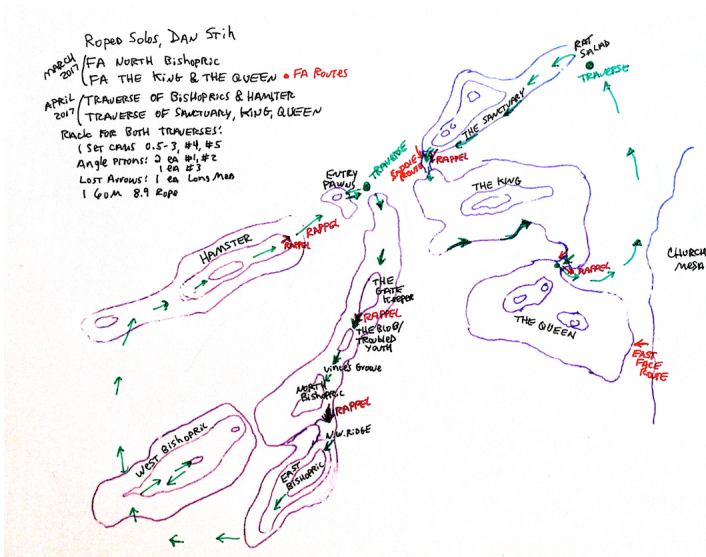 Roped Solos, Dan Stih
MARCH 2017
FA NORTH BISHOPRIC
FA THE KING & THE QUEEN • FA ROUTES
APRIL 2017
TRAVERSE OF BISHOPRICS & HAMSTER
TRAVERSE OF SANCTUARY, KING, QUEEN
Rack FOR BOTH TRAVERSES:
1 SET CAMS 0.5-3, #4, #5
Angle PITONS: 2 ea #1, #2
1 ea #3
Lost Arrows: 1 ea Long Med
1 60M 8.9 Rope
RAT SALAD
TRAVERSE
THE SANCTUARY
RAPPEL
SADDLE ROUTE
TRAVERSE
ENTRY PAWNS
THE KING
RAPPEL
CHURCH MESA
THE QUEEN
EAST FACE ROUTE
HAMSTER
RAPPEL
RAPPEL
THE GATE KEEPER
RAPPEL
THE BLOB/
TROUBLED YOUTH
Vince's Groove
NORTH BISHOPRIC
RAPPEL
N.W. RIDGE
EAST BISHOPRIC
WEST BISHOPRIC